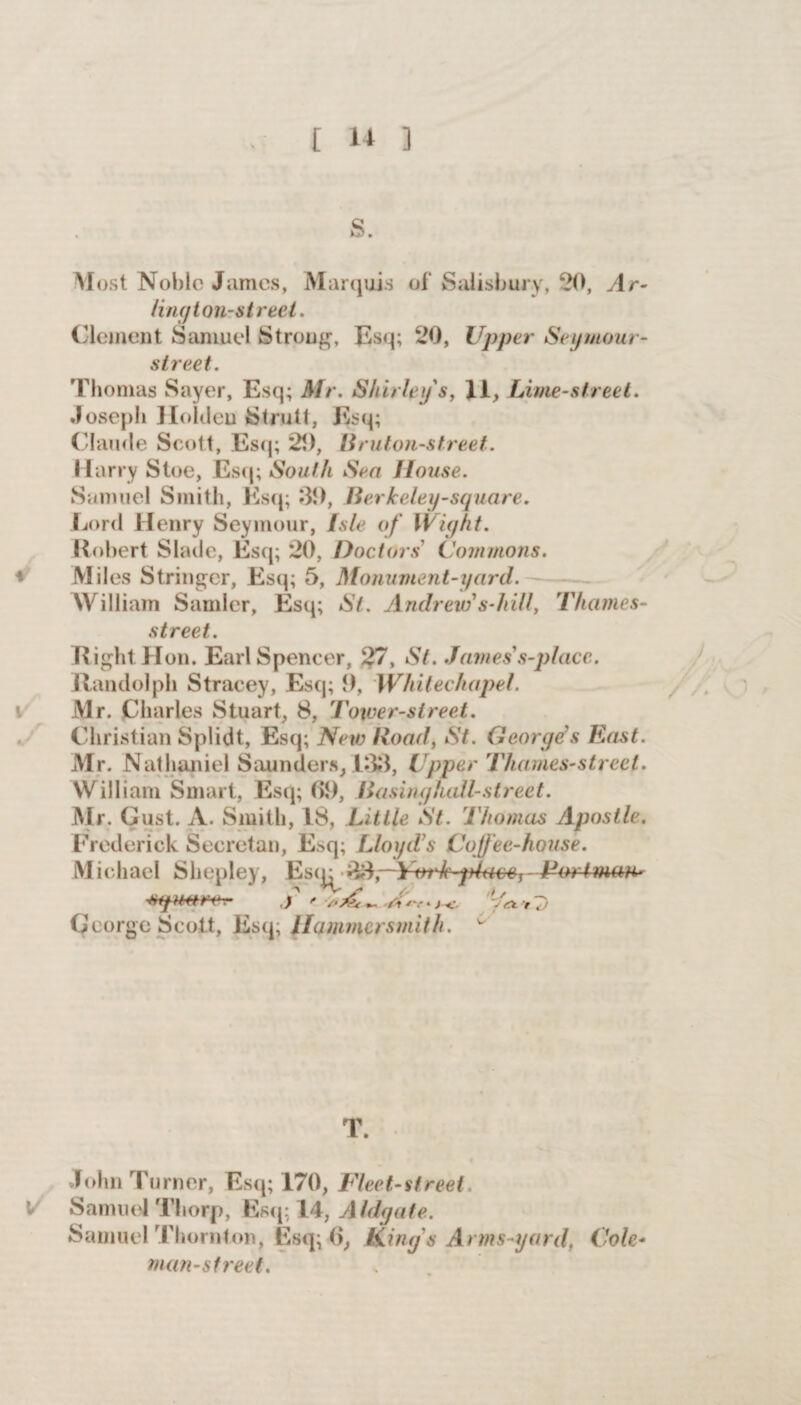 [ 14 ]
S.
Most Noble James, Marquis of Salisbury, 20, Ar-
lington-street.
Clement Samuel Strong, Esq; 20, Upper Seymour-
street.
Thomas Sayer, Esq; Mr. Shirley's, 11, Lime-street.
Joseph Holden Strutt, Esq;
Claude Scott, Esq; 29, Bruton-street.
Harry Stoe, Esq; South Sea House.
Samuel Smith, Esq; 39, Berkeley-square.
Lord Henry Seymour, Isle of Wight.
Robert Slade, Esq; 20, Doctors' Commons.
Miles Stringer, Esq; 5, Monument-yard.
William Samler, Esq; St. Andrew's-hill, Thames-
street.
Right Hon. Earl Spencer, 27, St. James's-place.
Randolph Stracey, Esq; 9, Whitechapel.
Mr. Charles Stuart, 8, Tower-street.
Christian Splidt, Esq; New Road, St. George's East.
Mr. Nathaniel Saunders, 133, Upper Thames-street.
William Smart, Esq; 69, Basinghall-street.
Mr. Gust. A. Smith, 18, Little St. Thomas Apostle.
Frederick Secretan, Esq; Lloyd's Coffee-house.
Michael Shepley, Esq; 33, York-place, Portman-
square. Yard
George Scott, Esq; Hammersmith.
T.
John Turner, Esq; 170, Fleet-street
Samuel Thorp, Esq; 14, Aldgate.
Samuel Thornton, Esq; 6, King's Arms-yard, Cole-
man-street.